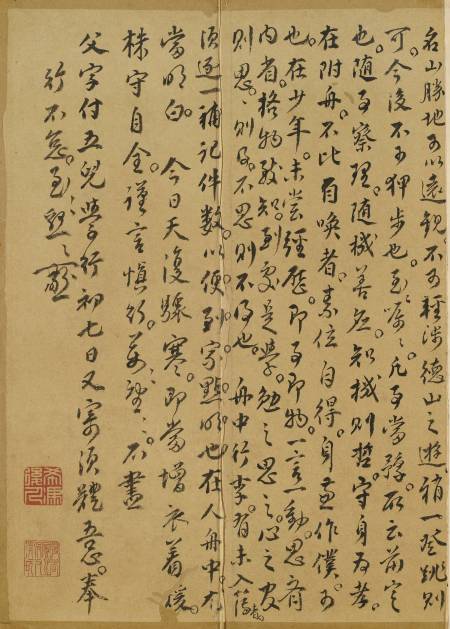 名山勝地可以遠觀。不可輕涉。德山之遊。稍一登跳則
可。今後不可狎步也。至囑々。凡事當豫。所云前定
也。隨事察理。隨機善應。知機則哲。守身為孝。
在附舟。不比自喚者。素位自得。身兼作僕。可
也。在少年。未嘗經歷。即事即物。一言一動。思齊
內省。格物致知。到處是學。勉之思之。心之官
則思。思則得。不思則不得也。舟中行李。有未入簿者。
須逐一補記件數。以便到家點明也。在人舟中。亦
當明白。今日天復驟寒。即當增衣著暖。
株守自全。謹言慎行。萬望々々。不盡
父字付五兒學行初七日又寄須體吾意。奉
行不怠。至